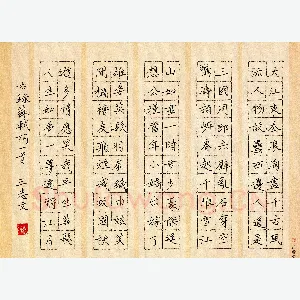 大江東去浪淘盡千古風
流人物故壘西邊人道是
三國周郎赤壁亂石穿空
驚濤拍岸捲起千堆雪江
山如畫一時多少豪傑遙
想公瑾當年小喬初嫁了
雄姿英發羽扇綸巾談笑
間檣櫓灰飛煙滅故國神
遊多情應笑我早生華髮
人生如夢一尊還酹江月
錄蘇軾詞一首